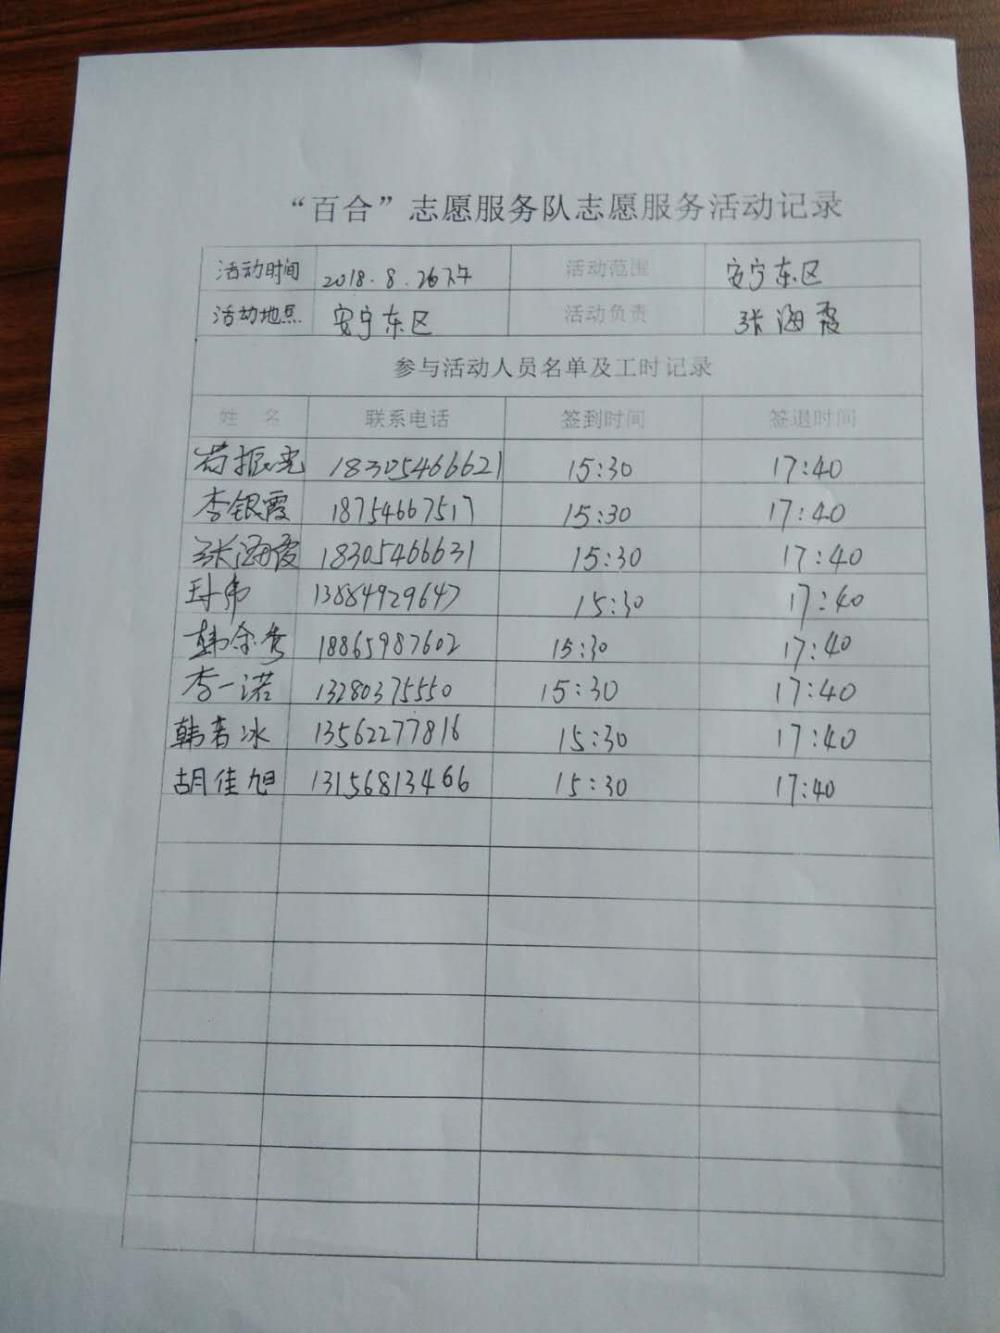 “百合”志愿服务队志愿服务活动记录
活动时间 2018.8.26下午 活动范围 安宁东区
活动地点 安宁东区 活动负责 张海霞
参与活动人员名单及工时记录
姓 名 联系电话 签到时间 签退时间
苟振亮 18305466621 15:30 17:40
李银霞 18754667517 15:30 17:40
张海霞 18305466631 15:30 17:40
13884929647 15:30 17:40
韩 秀 18865987602 15:30 17:40
李一诺 13280375550 15:30 17:40
韩若冰 13562277816 15:30 17:40
胡佳旭 13156813466 15:30 17:40